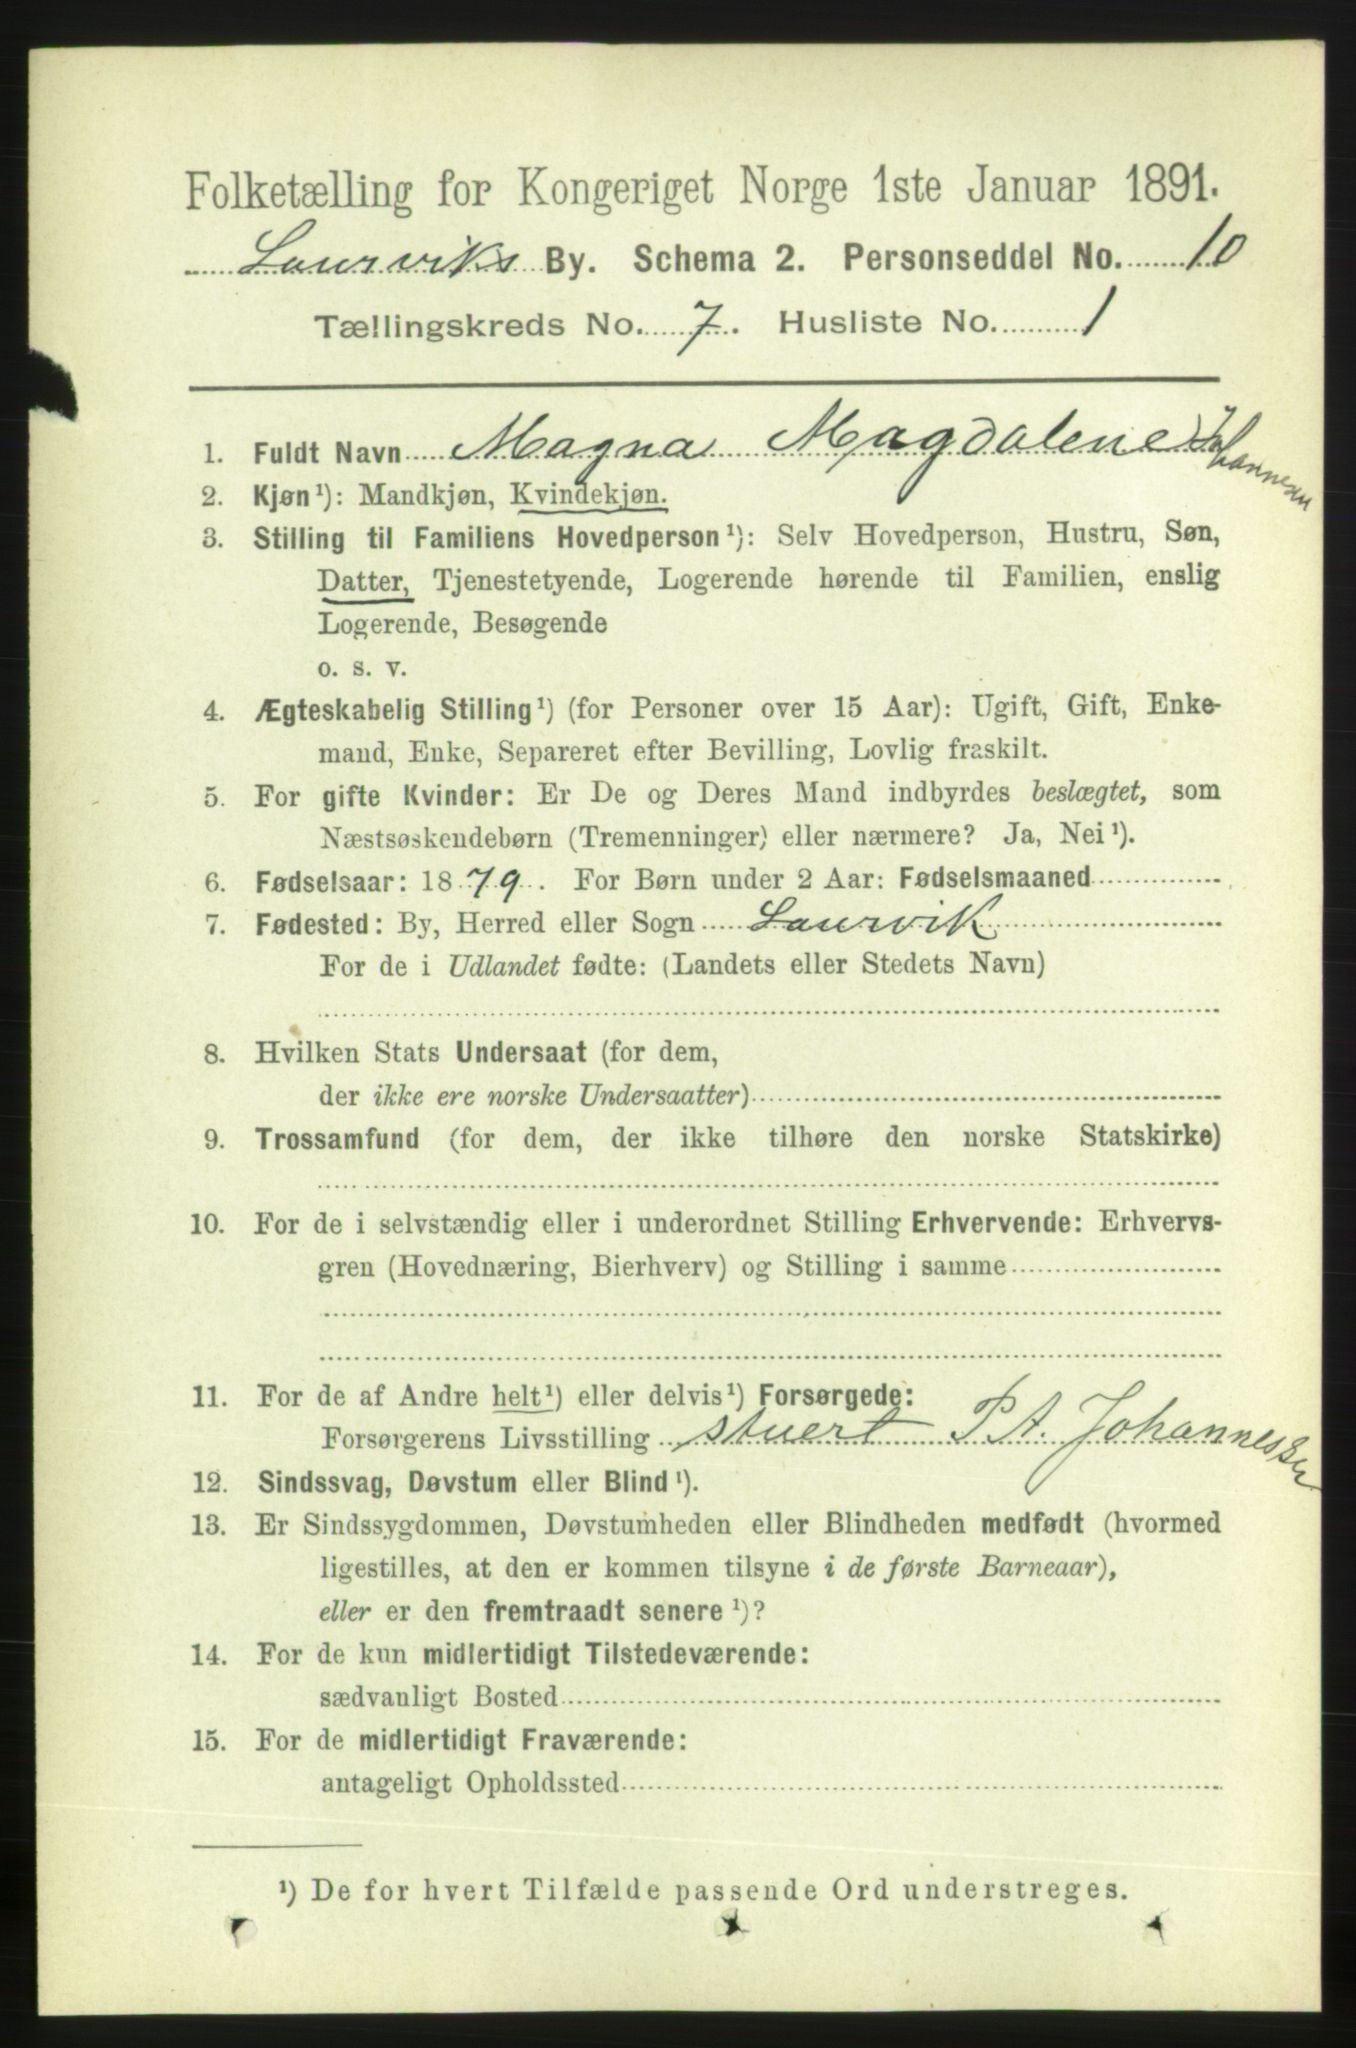 Folketælling for Kongeriget Norge 1ste Januar 1891.
Laurviks By. Schema 2. Personseddel No. 10
Tællingskreds No. 7. Husliste No. 1
1. Fuldt Navn Magna Magdalene Johannesen
2. Kjøn¹): Mandkjøn, Kvindekjøn.
3. Stilling til Familiens Hovedperson¹): Selv Hovedperson, Hustru, Søn,
Datter, Tjenestetyende, Logerende hørende til Familien, enslig
Logerende, Besøgende
o. s. v.
4. Ægteskabelig Stilling¹) (for Personer over 15 Aar): Ugift, Gift, Enke-
mand, Enke, Separeret efter Bevilling, Lovlig fraskilt.
5. For gifte Kvinder: Er De og Deres Mand indbyrdes beslægtet, som
Næstsøskendebørn (Tremenninger) eller nærmere? Ja, Nei¹).
6. Fødselsaar: 1879. For Børn under 2 Aar: Fødselsmaaned
7. Fødested: By, Herred eller Sogn Laurvik
For de i Udlandet fødte: (Landets eller Stedets Navn)
8. Hvilken Stats Undersaat (for dem,
der ikke ere norske Undersaatter)
9. Trossamfund (for dem, der ikke tilhøre den norske Statskirke)
10. For de i selvstændig eller i underordnet Stilling Erhvervende: Erhvervs-
gren (Hovednæring, Bierhverv) og Stilling i samme
11. For de af Andre helt¹) eller delvis¹) Forsørgede:
Forsørgerens Livsstilling stuert P. A. Johannessen
12. Sindssvag, Døvstum eller Blind¹).
13. Er Sindssygdommen, Døvstumheden eller Blindheden medfødt (hvormed
ligestilles, at den er kommen tilsyne i de første Barneaar),
eller er den fremtraadt senere¹)?
14. For de kun midlertidigt Tilstedeværende:
sædvanligt Bosted
15. For de midlertidigt Fraværende:
antageligt Opholdssted
¹) De for hvert Tilfælde passende Ord understreges.